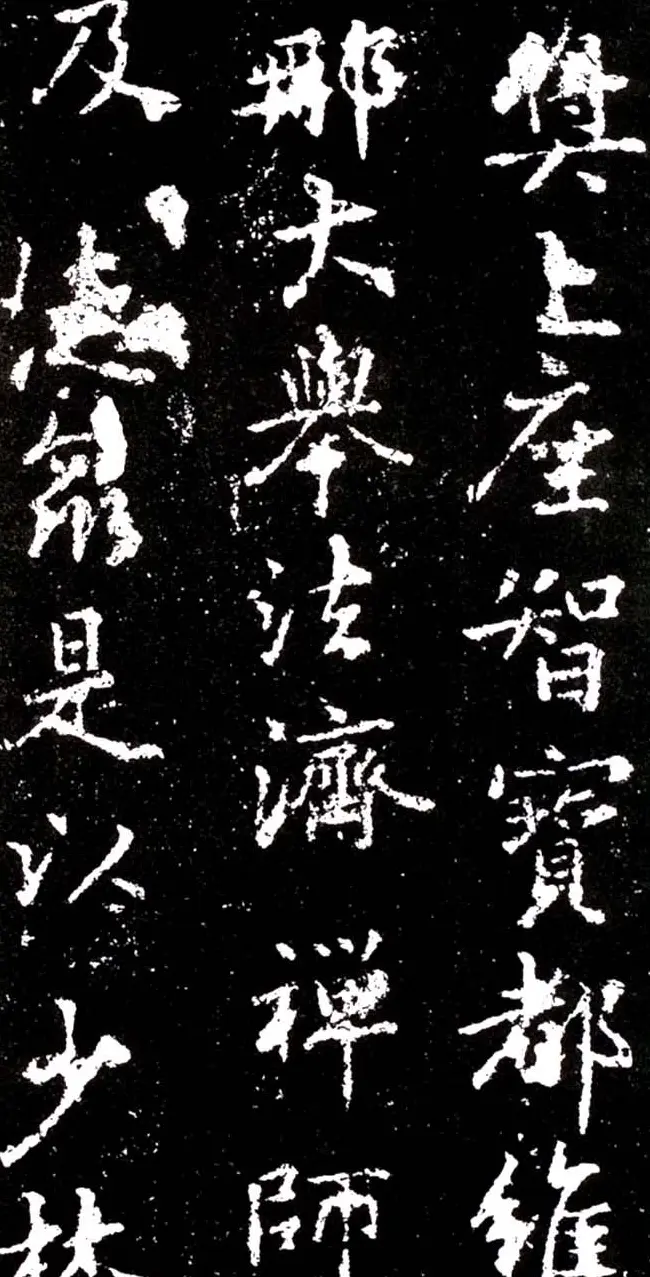 奬上座智寶都維
那大舉法濟禪師
及德衆是以少林